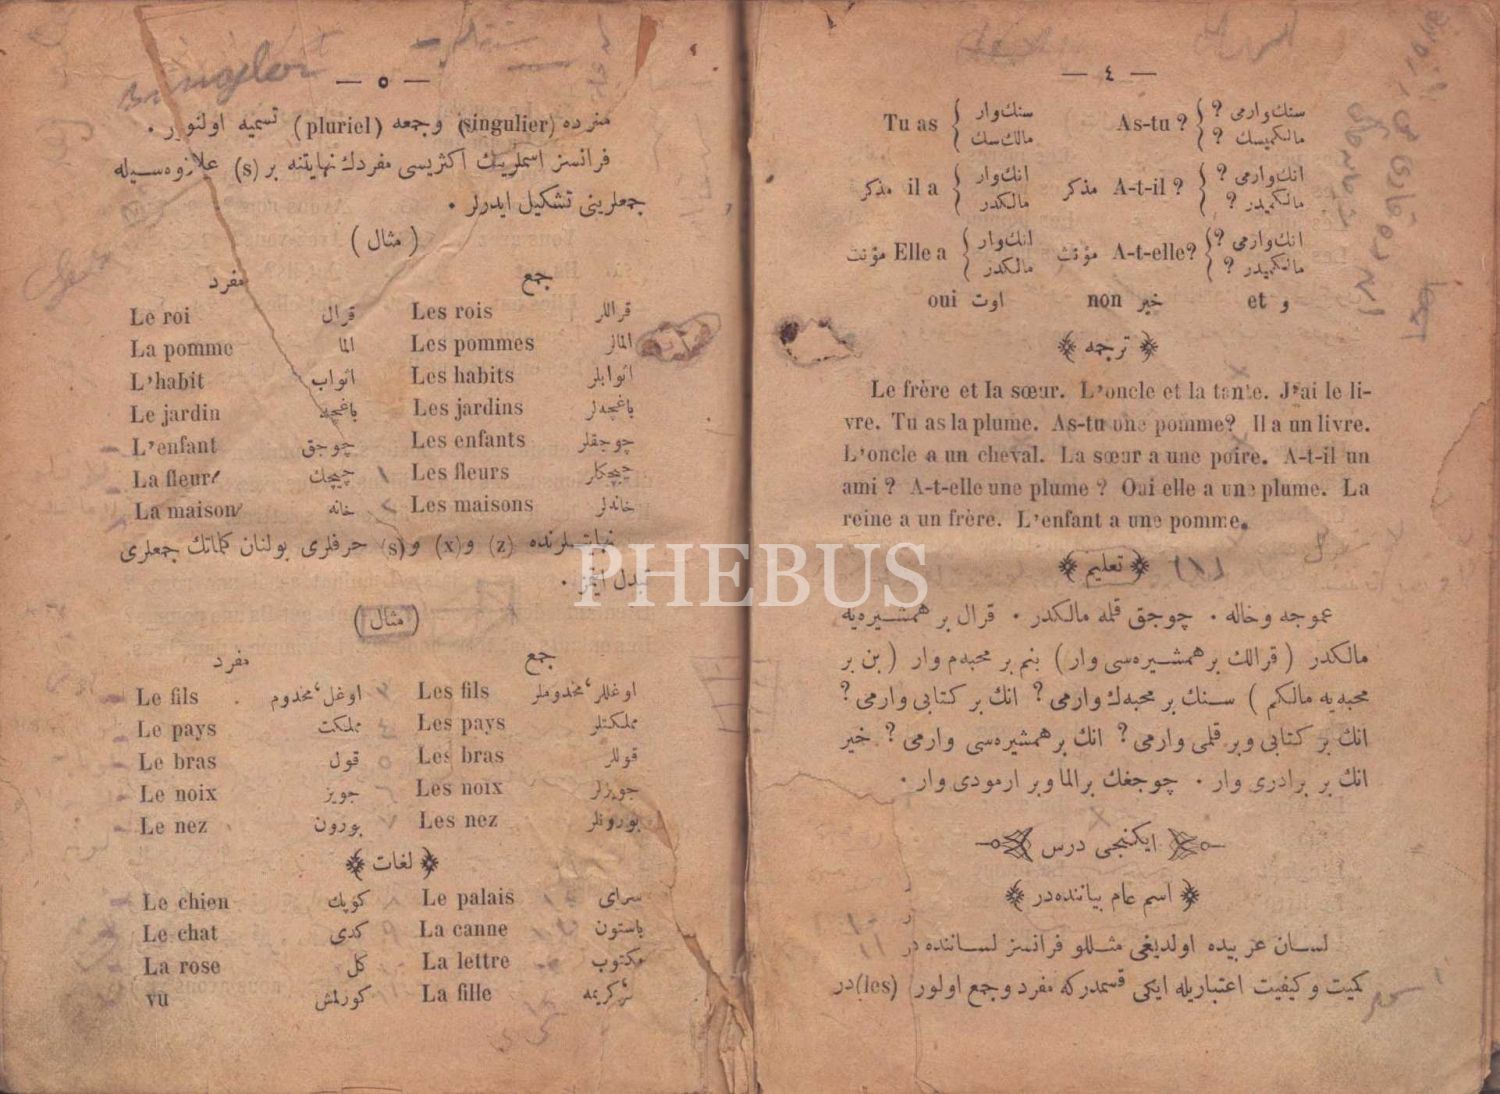 — ٤ —
Tu as { سنك وار As-tu ? { سنك وارمی ؟
مالك سك مالكمیسك ؟
il a مذكر { انك وار A-t-il ? مذكر { انك وارمی ؟
مالكدر مالكمیدر ؟
Elle a مؤنث { انك وار A-t-elle? مؤنث { انك وارمی ؟
مالكدر مالكمیدر ؟
oui اوت non خیر et و
ترجمه
Le frère et la sœur. L'oncle et la tante. J'ai le li-
vre. Tu as la plume. As-tu une pomme? Il a un livre.
L'oncle a un cheval. La sœur a une poire. A-t-il un
ami ? A-t-elle une plume ? Oui elle a une plume. La
reine a un frère. L'enfant a une pomme.
(١) تعلیم
عموجه وخاله ٠ چوجق قلمه مالكدر ٠ قرال بر همشیره‌یه
مالكدر ( قرالك بر همشیره‌سی وار ) بنم بر محبه‌م وار ( بن بر
محبه‌یه مالكم ) سنك بر محبه‌ك وارمی ؟ انك بر كتابی وارمی ؟
انك بر كتابی وبر قلمی وارمی ؟ انك بر همشیره‌سی وارمی ؟ خیر
انك بر برادری وار ٠ چوجغك بر الما وبر ارمودی وار ٠
ایكنجی درس
اسم عام بیاننده‌در
لسان عربیده اولدیغی مثللو فرانسز لساننده در
كمیت و كیفیت اعتباریله ایكی قسمدركه مفرد وجمع اولور (les) در
— ٥ —
singulier
مفرده (singulier) وجمعه (pluriel) تسمیه اولنور ٠
فرانسز اسملرینك اكثریسی مفردك نهایتنه بر (s) علاوه‌سیله
جمعلرینی تشكیل ایدرلر ٠
( مثال )
مفرد جمع
Le roi قرال Les rois قراللر
La pomme الما Les pommes المالر
L'habit اثواب Les habits اثوابلر
Le jardin باغچه Les jardins باغچه‌لر
L'enfant چوجق Les enfants چوجقلر
La fleur چیچك Les fleurs چیچكلر
La maison خانه Les maisons خانه‌لر
نهایتلرنده (z) و (x) و (s) حرفلری بولنان كلماتك جمعلری
تبدل ایتمز ٠
( مثال )
مفرد جمع
Le fils اوغل، مخدوم Les fils اوغللر، مخدوملر
Le pays مملكت Les pays مملكتلر
Le bras قول Les bras قوللر
Le noix جویز Les noix جویزلر
Le nez بورون Les nez بورونلر
لغات
Le chien كوپك Le palais سرای
Le chat كدی La canne باستون
La rose كل La lettre مكتوب
vu كورلمش La fille كریمه
PHEBUS